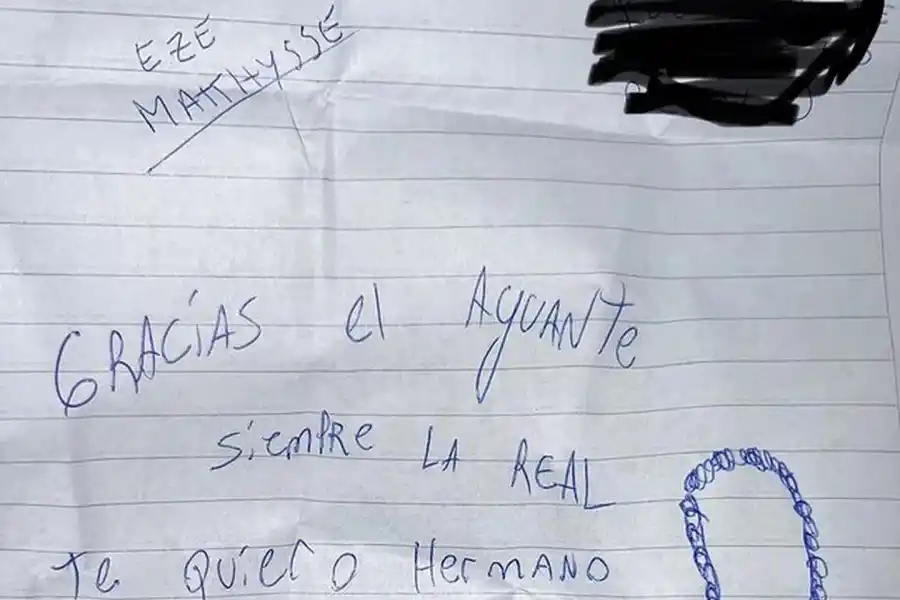 EZE
MATTHYSSE
GRACiAS el AGUANTe
siempRe LA REAL
Te QUierO HermANO